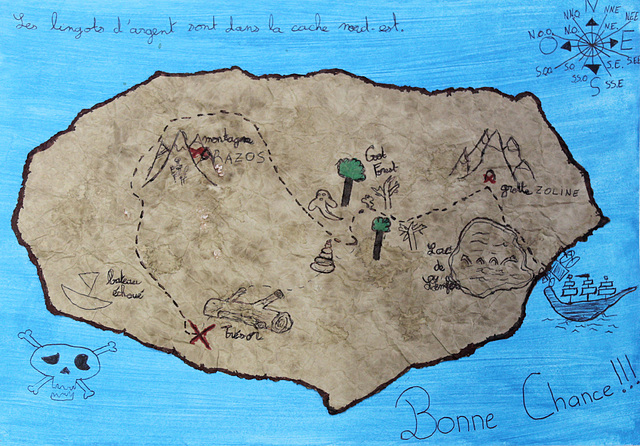 Les lingots d'argent sont dans la cache nord-est.
N
N.N.O
NNE
N.O
N.E.
NEE
N.O.O
O
E
S.O.O
S.O
S.E.
S.E.E
SS.O
SS.E
S
montagne
RAZOS
Goot
Forest
grotte ZOLINE
Lac
de
bateau
échoué
Trésor
Bonne Chance!!!